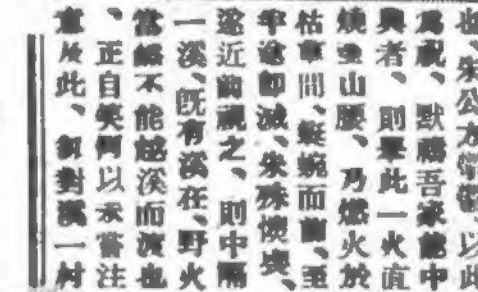 也、朱公方𢥠𢥠、以此
為祝、默禱吾家能中
興者、則果此一火直
燒至山腰、乃燃火於
枯草間、蜿蜒而前、至
半途卽滅、朱殊懊喪、
遂近前視之、則中隔
一溪、既有溪在、野火
當然不能越溪而渡也
、正自笑何以未嘗注
意及此、對溪一村